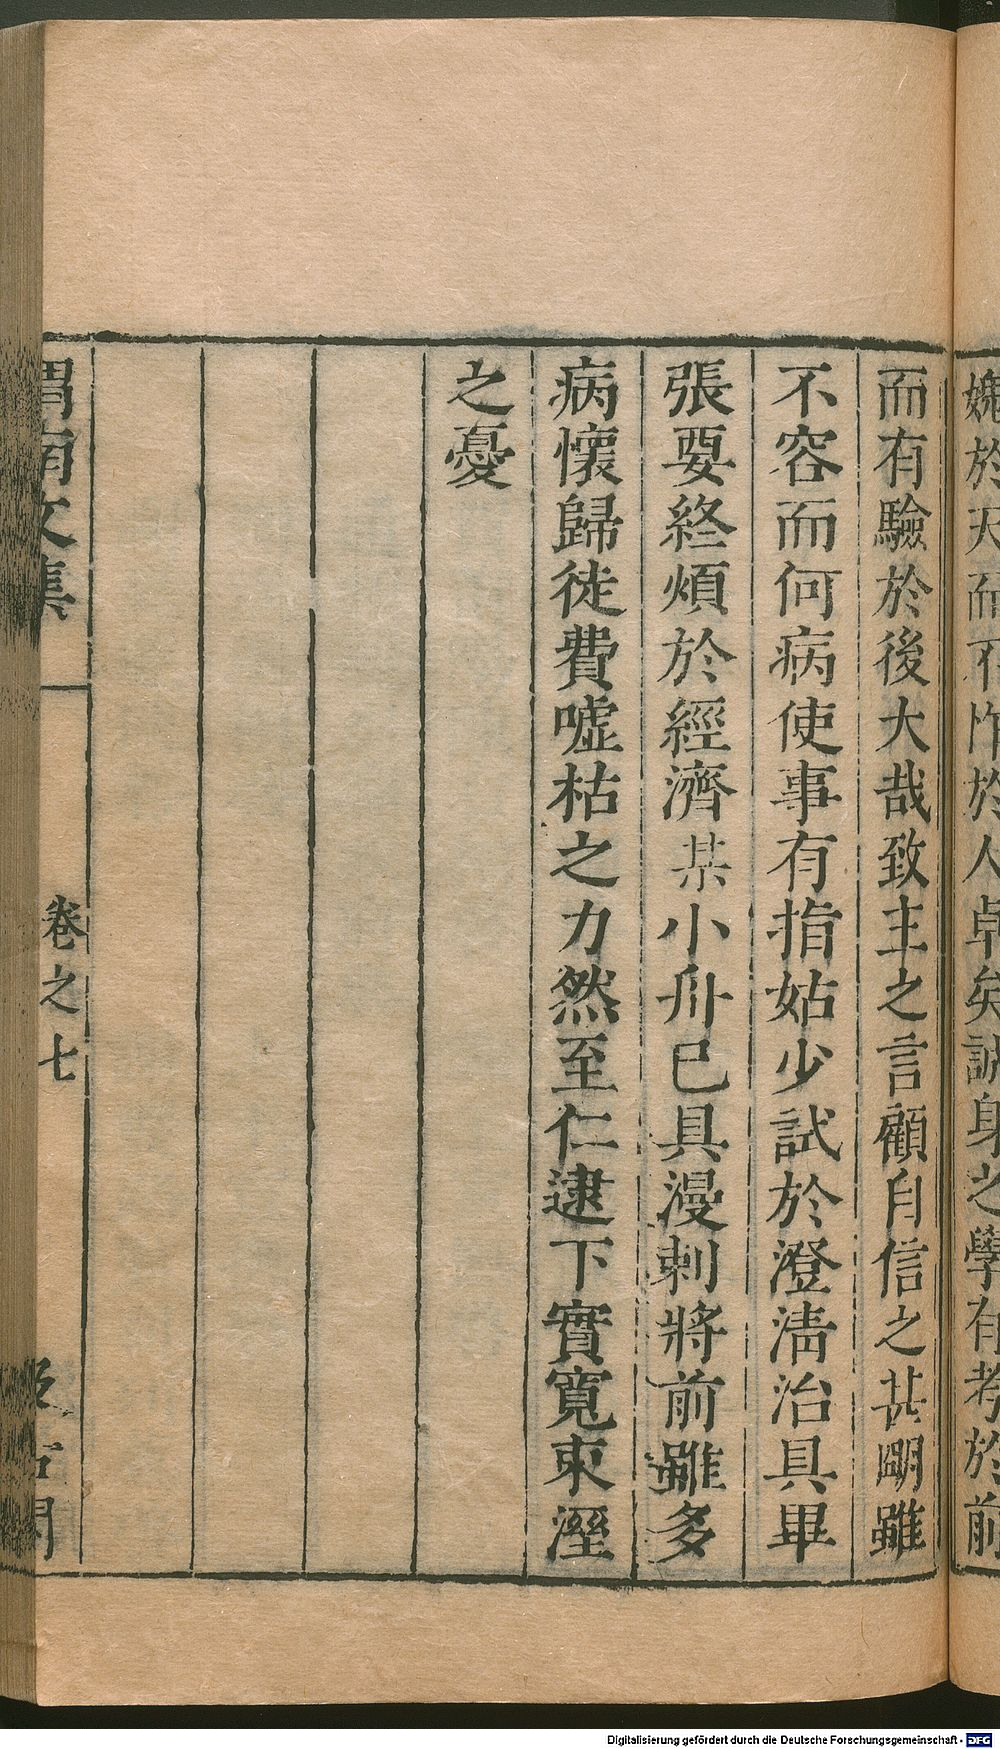 媿於天而不怍於人卓矣誠身之學有考於前
而有驗於後大哉致主之言顧自信之甚明雖
不容而何病使事有指姑少試於澄淸治具畢
張要終煩於經濟某小舟已具漫刺將前雖多
病懷歸徒費噓枯之力然至仁逮下實寬束溼
之憂
渭南文集
卷之七
汲古閣
Digitalisierung gefördert durch die Deutsche Forschungsgemeinschaft - DFG